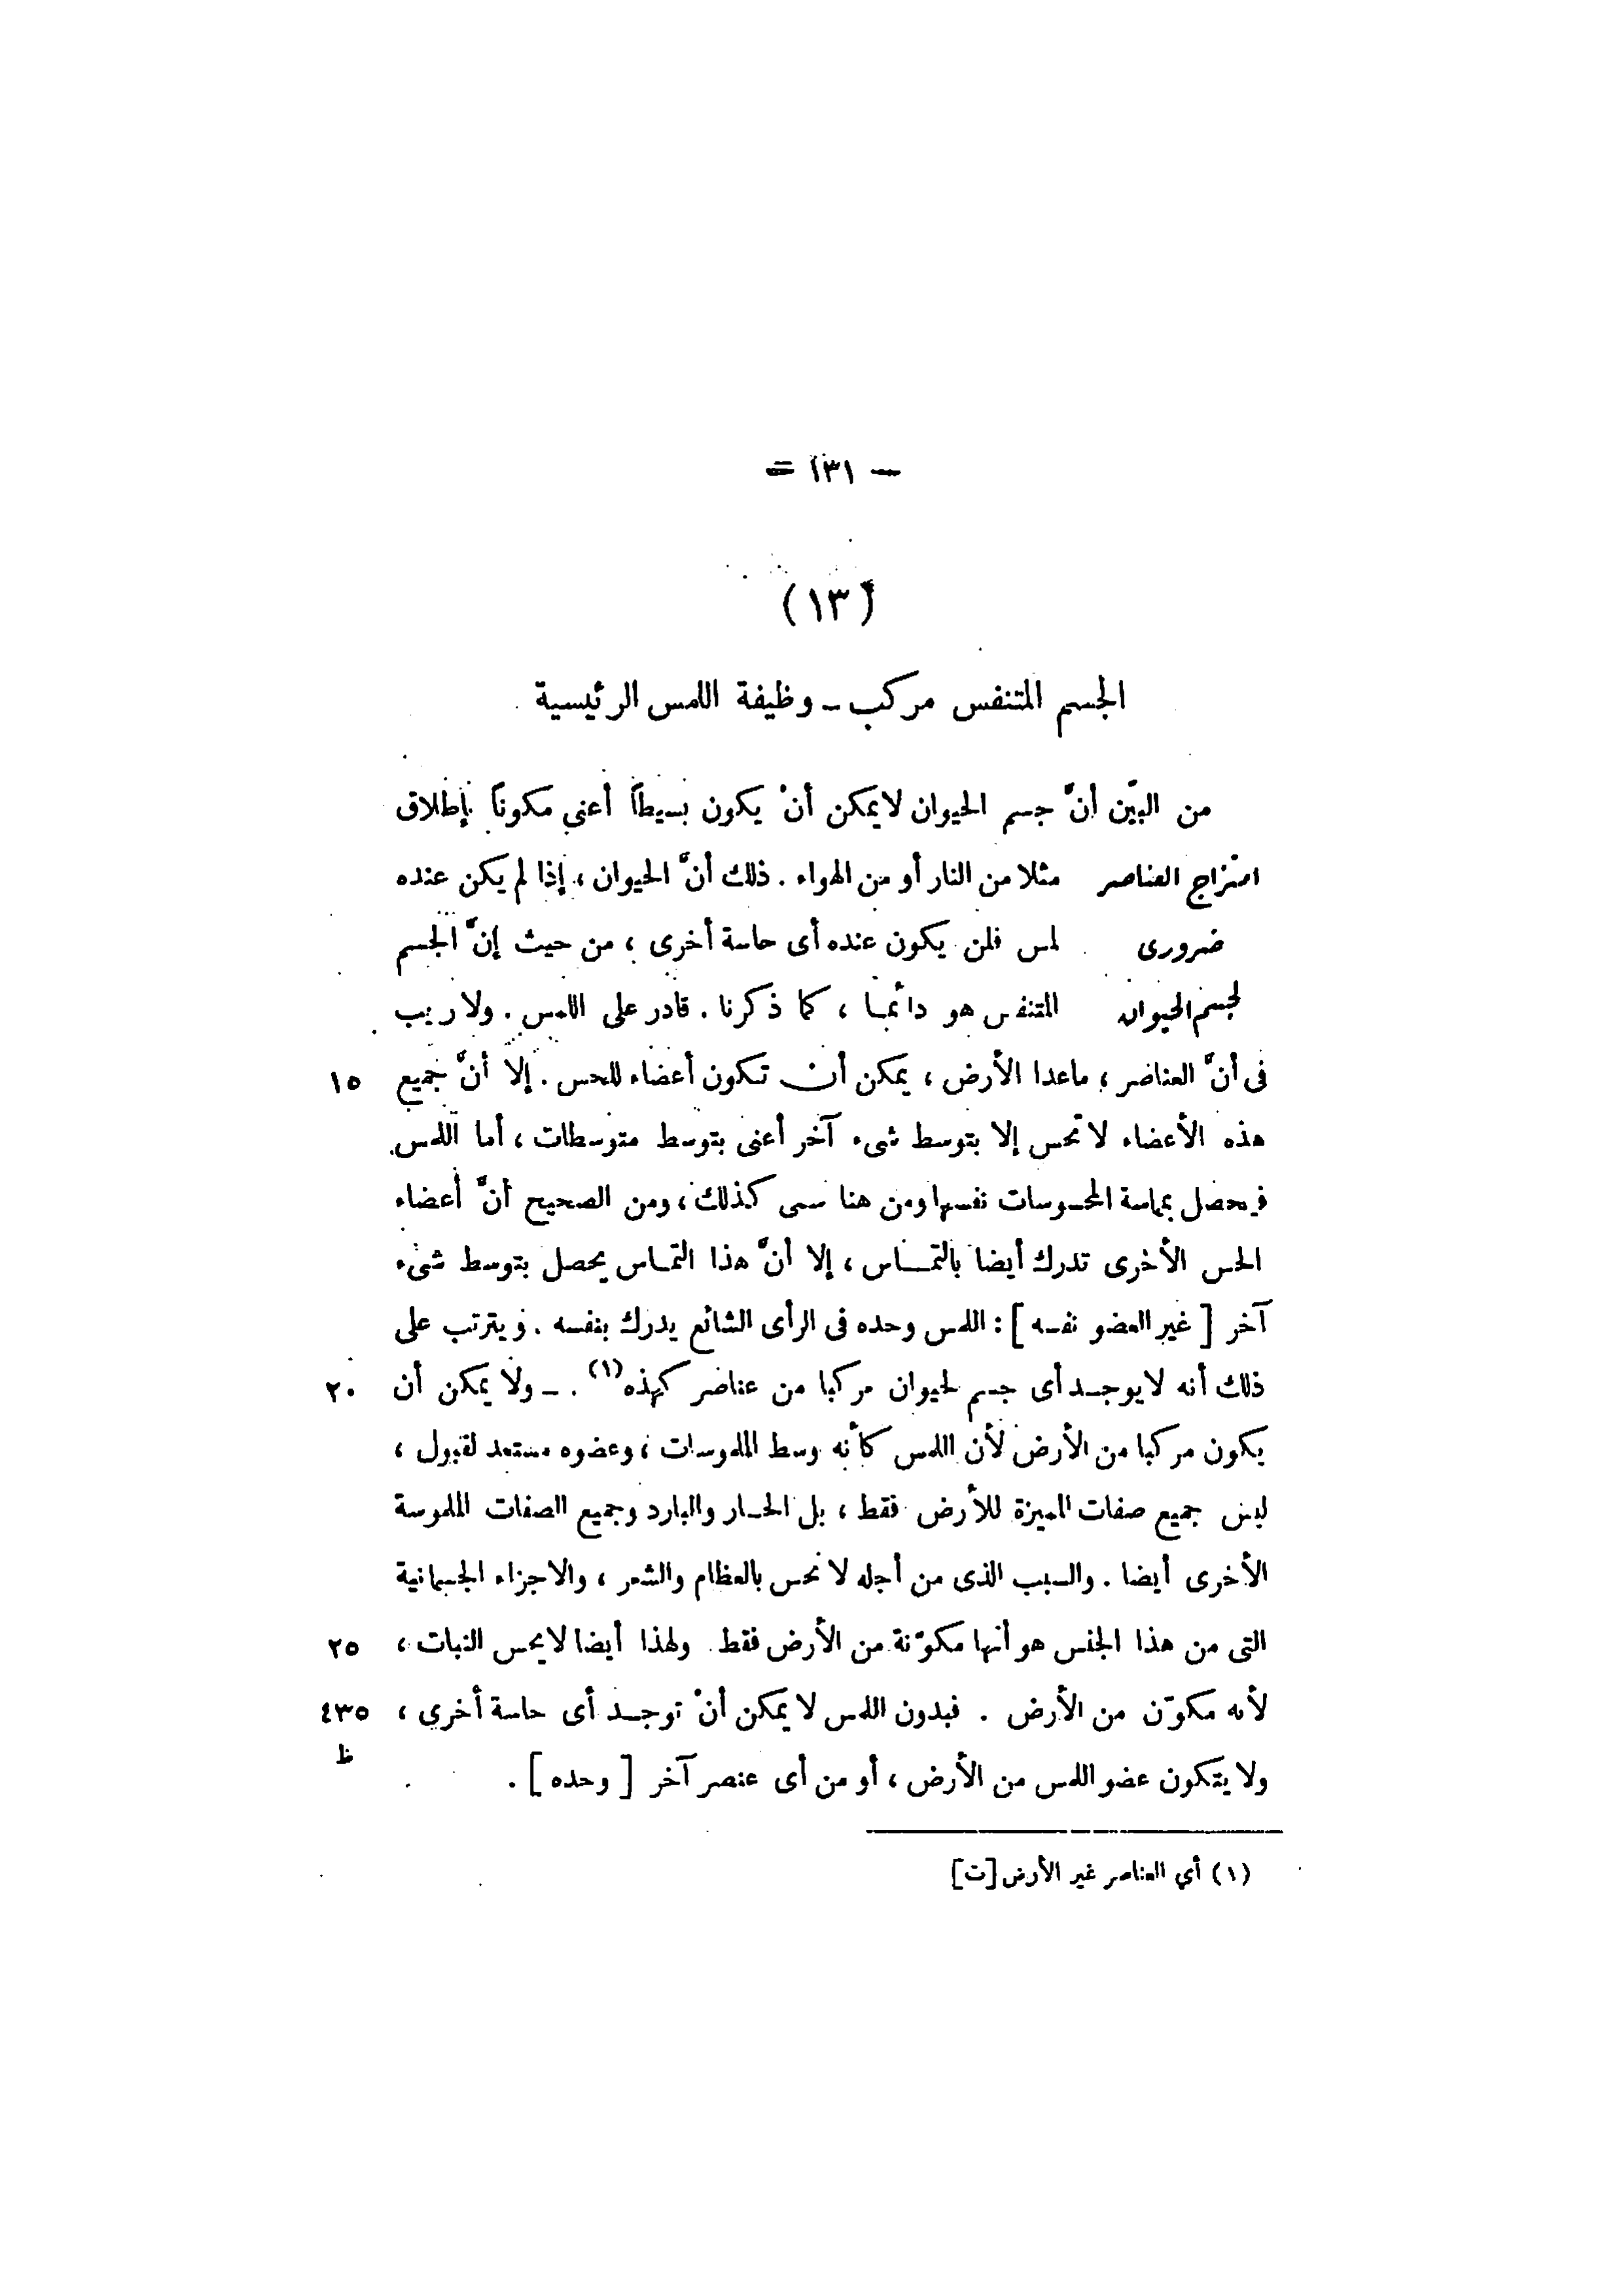 — ١٣١ =
(١٣)
الجسم المتنفس مركب — وظيفة اللمس الرئيسية
من البيّن أنَّ جسم الحيوان لا يمكن أنْ يكون بسيطاً أعنى مكوناً بإطلاق
امتزاج العناصر مثلا من النار أو من الهواء . ذلك أنَّ الحيوان ، إذا لم يكن عنده
ضرورى لمس فلن يكون عنده أى حاسة أخرى ، من حيث إنَّ الجسم
لجسم الحيوان المتنفس هو دائما ، كما ذكرنا . قادر على اللمس . ولا ريب
فى أنَّ العناصر ، ماعدا الأرض ، يمكن أن تكون أعضاء للحس . إلا أنَّ جميع ١٥
هذه الأعضاء لا تحس إلا بتوسط شىء آخر أعنى بتوسط متوسطات ، أما اللمس
فيحصل بمماسة المحسوسات نفسها ومن هنا سمى كذلك ، ومن الصحيح أنَّ أعضاء
الحس الأخرى تدرك أيضا بالتماس ، إلا أنَّ هذا التماس يحصل بتوسط شىء
آخر [ غير العضو نفسه ] : اللمس وحده فى الرأى الشائع يدرك بنفسه . ويترتب على
ذلك أنه لا يوجد أى جسم لحيوان مركبا من عناصر كهذه (١) . — ولا يمكن أن ٢٠
يكون مركبا من الأرض لأن اللمس كأنه وسط الملموسات ، وعضوه مستعد لقبول ،
ليس جميع صفات المميزة للأرض فقط ، بل الحار والبارد وجميع الصفات الملموسة
الأخرى أيضا . والسبب الذى من أجله لا نحس بالعظام والشعر ، والاجزاء الجسمانية
التى من هذا الجنس هو أنها مكوّنة من الأرض فقط ولهذا أيضا لا يحس النبات ، ٢٥
لأنه مكوّن من الأرض . فبدون اللمس لا يمكن أنْ توجد أى حاسة أخرى ، ٤٣٥
ظ
ولا يتكون عضو اللمس من الأرض ، أو من أى عنصر آخر [ وحده ] .
(١) أي العناصر غير الأرض [ت]